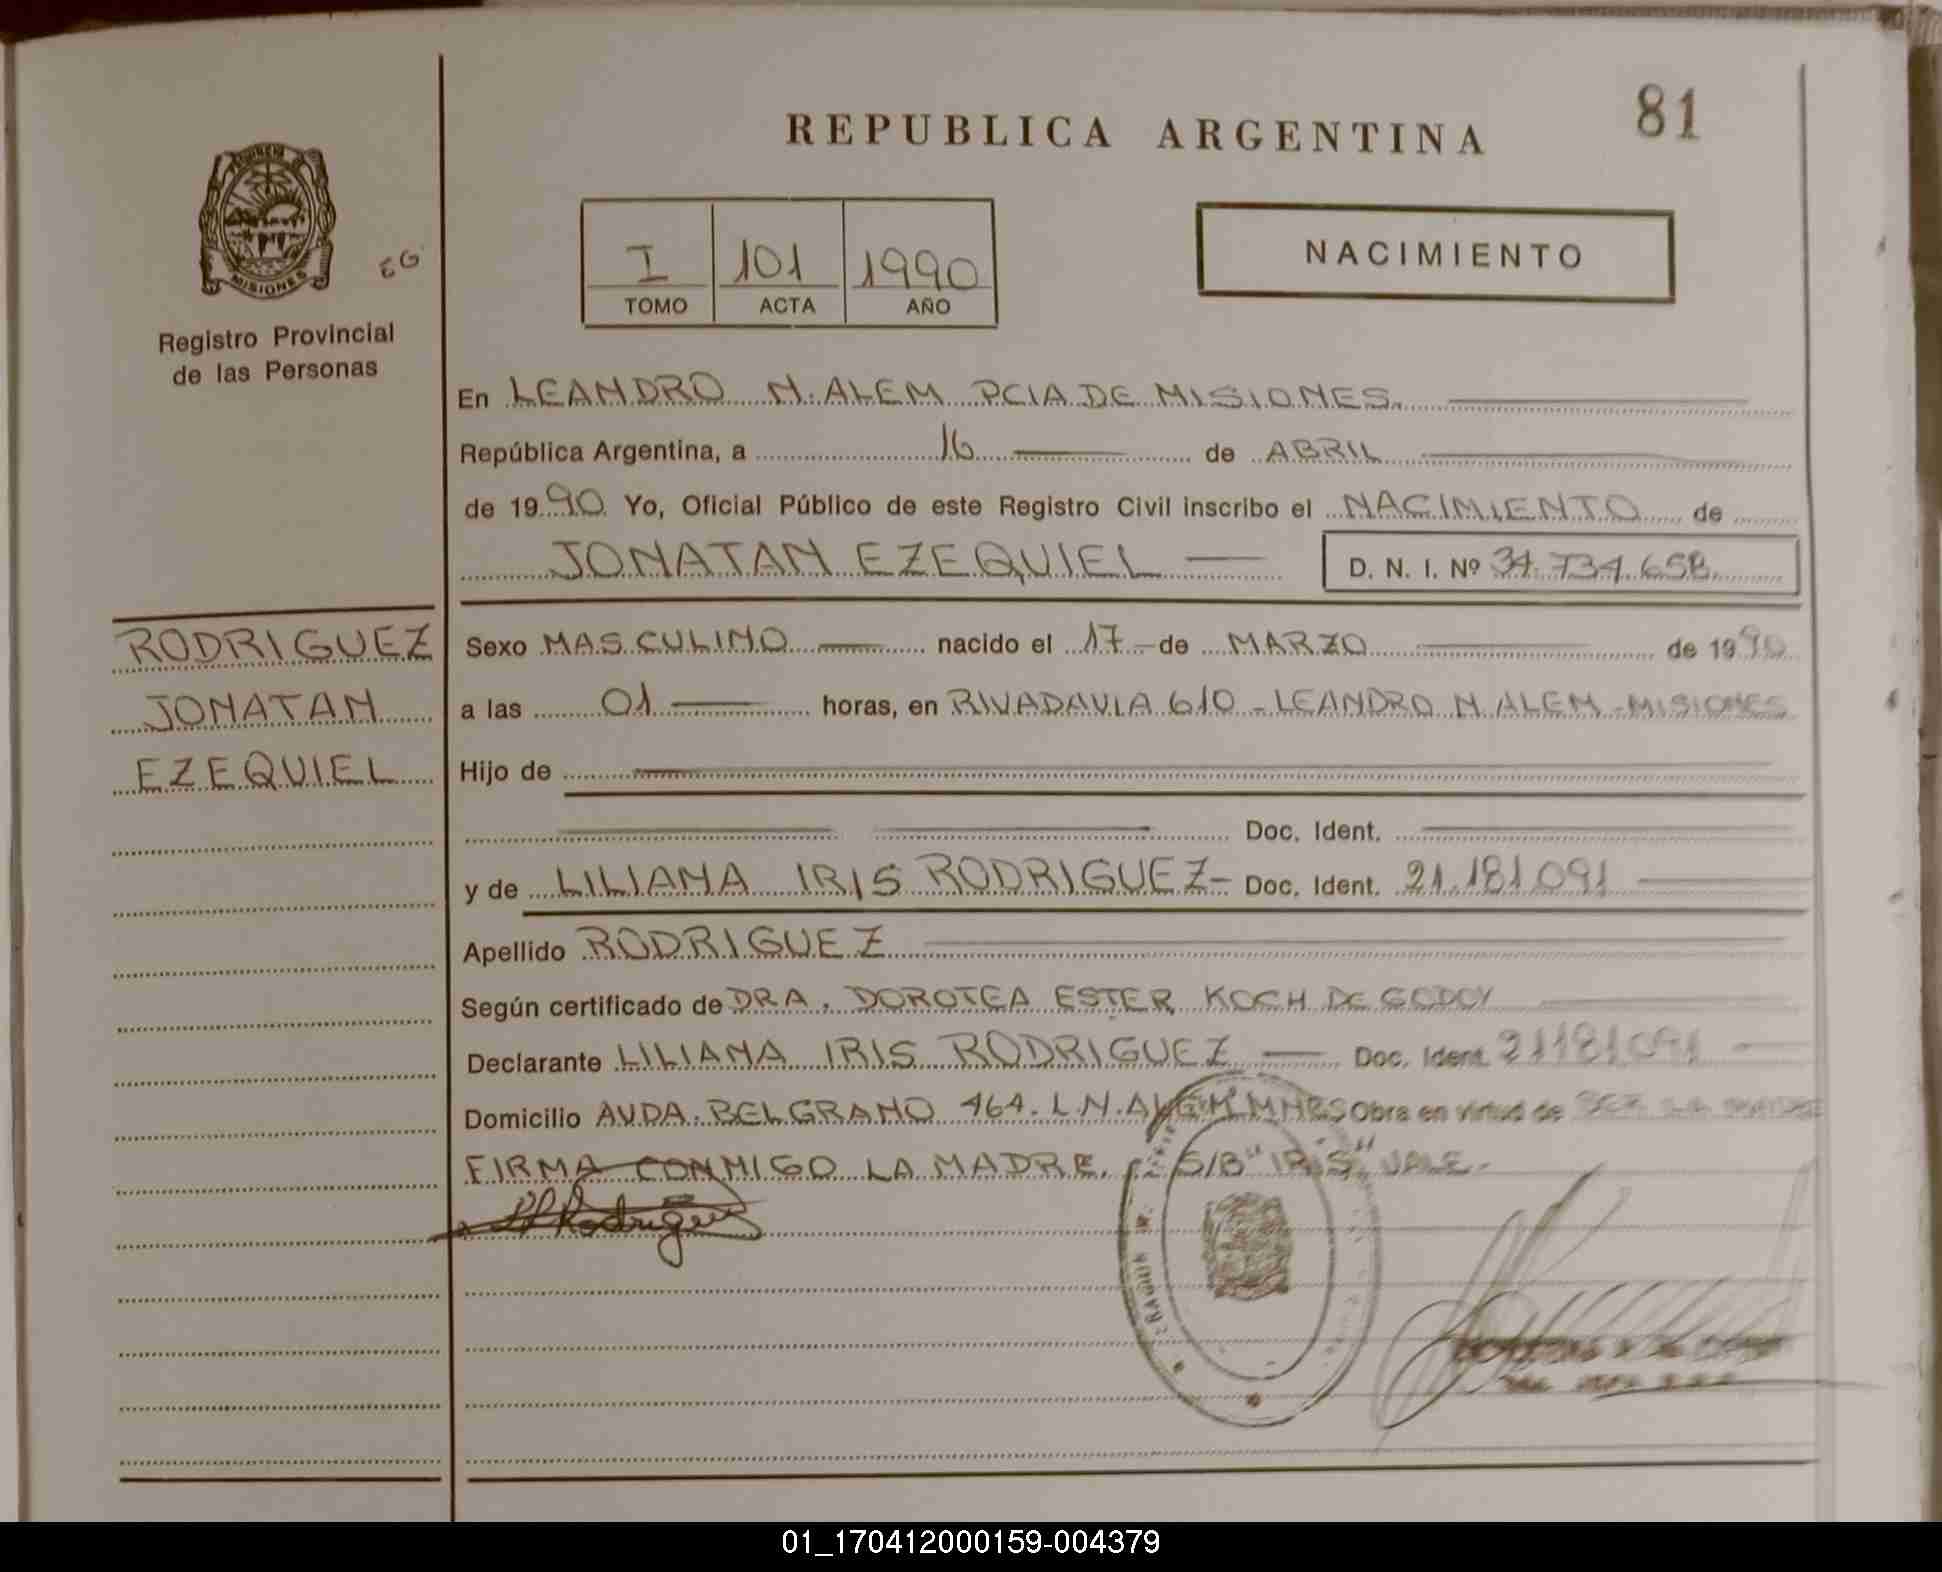 81
REPUBLICA ARGENTINA
MISIONES
EG
Registro Provincial
de las Personas
I 101 1990
TOMO ACTA AÑO
NACIMIENTO
En LEANDRO N. ALEM PCIA DE MISIONES.
República Argentina, a 16 de ABRIL
de 1990 Yo, Oficial Público de este Registro Civil inscribo el NACIMIENTO de
JONATAN EZEQUIEL D. N. I. Nº 34.734.658
RODRIGUEZ
JONATAN
EZEQUIEL
Sexo MASCULINO nacido el 17 de MARZO de 1990
a las 01 horas, en RIVADAVIA 610 - LEANDRO N. ALEM - MISIONES
Hijo de
Doc. Ident.
y de LILIANA IRIS RODRIGUEZ - Doc. Ident. 21.181.091
Apellido RODRIGUEZ
Según certificado de DRA. DOROTEA ESTER KOCH DE GODOY
Declarante LILIANA IRIS RODRIGUEZ Doc. Ident. 21181091
Domicilio AVDA. BELGRANO 464. L.N.ALEM MNES Obra en virtud de SER LA MADRE
FIRMA CONMIGO LA MADRE. S/B "IRIS" VALE.-
Rodriguez
01_170412000159-004379